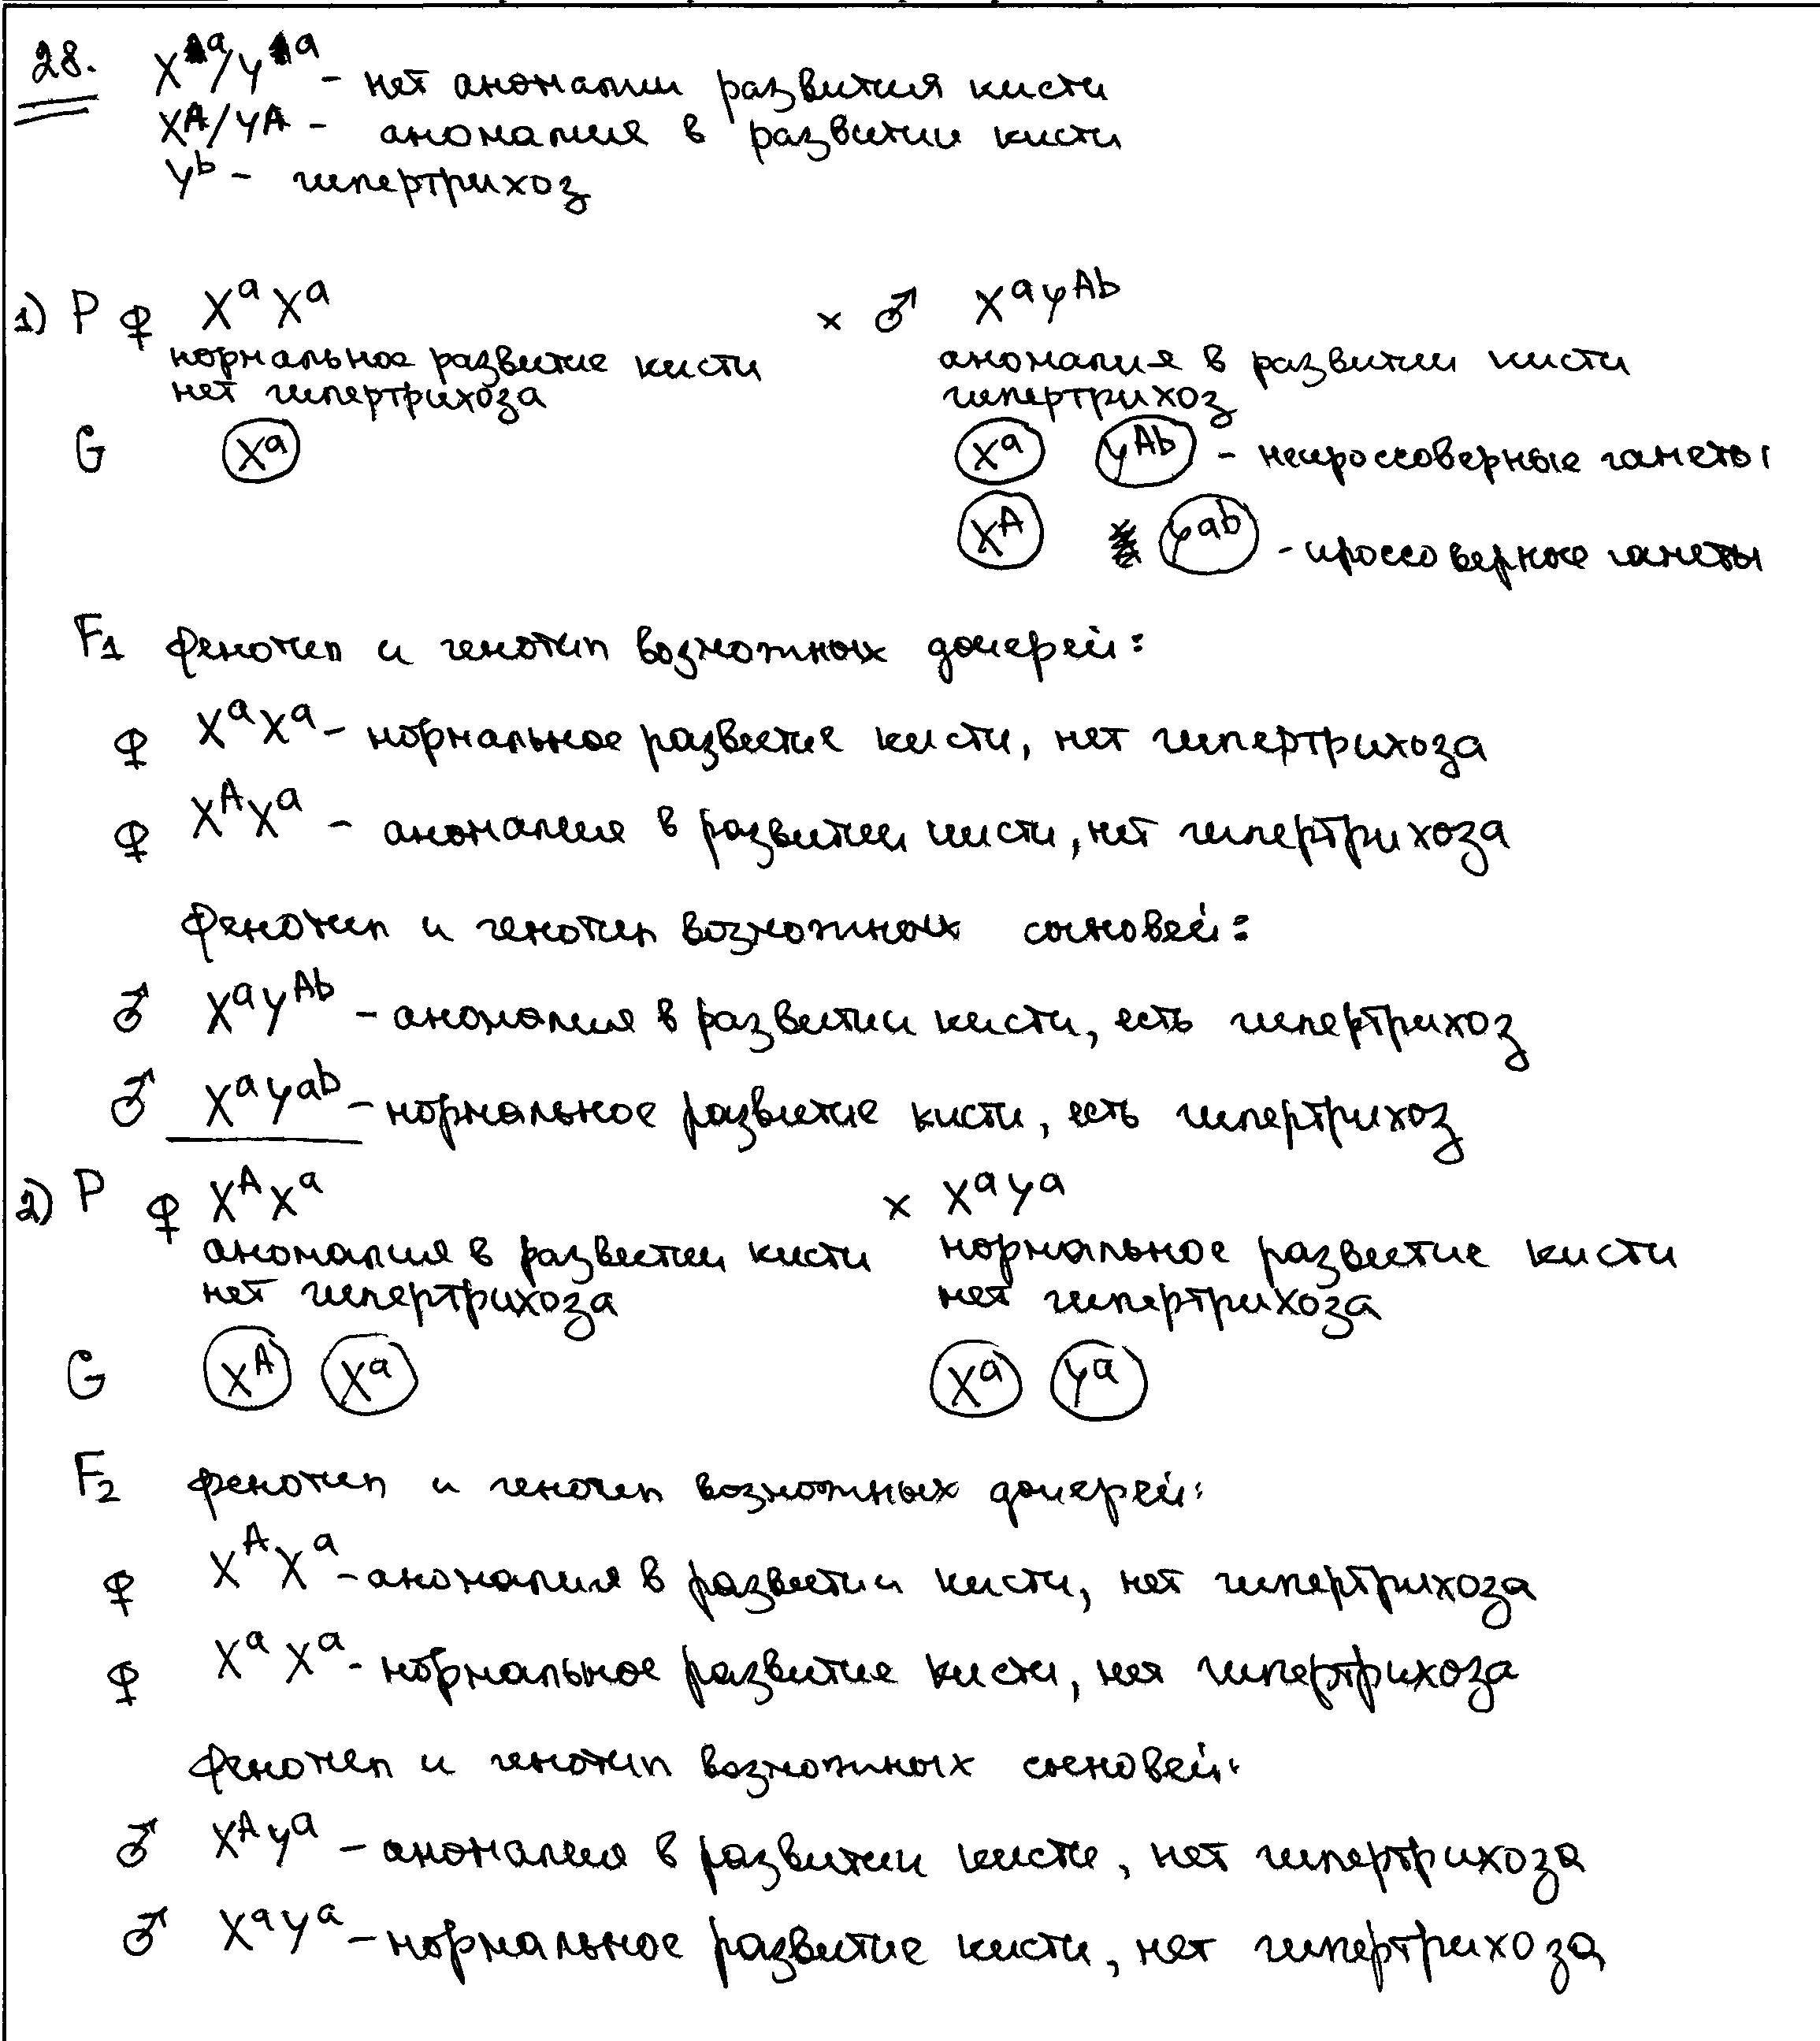 28. Xᵃ/Yᵃ - нет аномалии развития кисти
Xᴬ/Yᴬ - аномалия в развитии кисти
Yᵇ - гипертрихоз
1) P ♀ XᵃXᵃ × ♂ XᵃYᴬᵇ
нормальное развитие кисти аномалия в развитии кисти
нет гипертрихоза гипертрихоз
G Xᵃ Xᵃ Yᴬᵇ - некроссоверные гаметы
Xᴬ Yᵃᵇ - кроссоверные гаметы
F₁ фенотип и генотип возможных дочерей:
♀ XᵃXᵃ - нормальное развитие кисти, нет гипертрихоза
♀ XᴬXᵃ - аномалия в развитии кисти, нет гипертрихоза
Фенотип и генотип возможных сыновей:
♂ XᵃYᴬᵇ - аномалия в развитии кисти, есть гипертрихоз
♂ XᵃYᵃᵇ - нормальное развитие кисти, есть гипертрихоз
2) P ♀ XᴬXᵃ × XᵃYᵃ
аномалия в развитии кисти нормальное развитие кисти
нет гипертрихоза нет гипертрихоза
G Xᴬ Xᵃ Xᵃ Yᵃ
F₂ фенотип и генотип возможных дочерей:
♀ XᴬXᵃ - аномалия в развитии кисти, нет гипертрихоза
♀ XᵃXᵃ - нормальное развитие кисти, нет гипертрихоза
Фенотип и генотип возможных сыновей:
♂ XᴬYᵃ - аномалия в развитии кисти, нет гипертрихоза
♂ XᵃYᵃ - нормальное развитие кисти, нет гипертрихоза